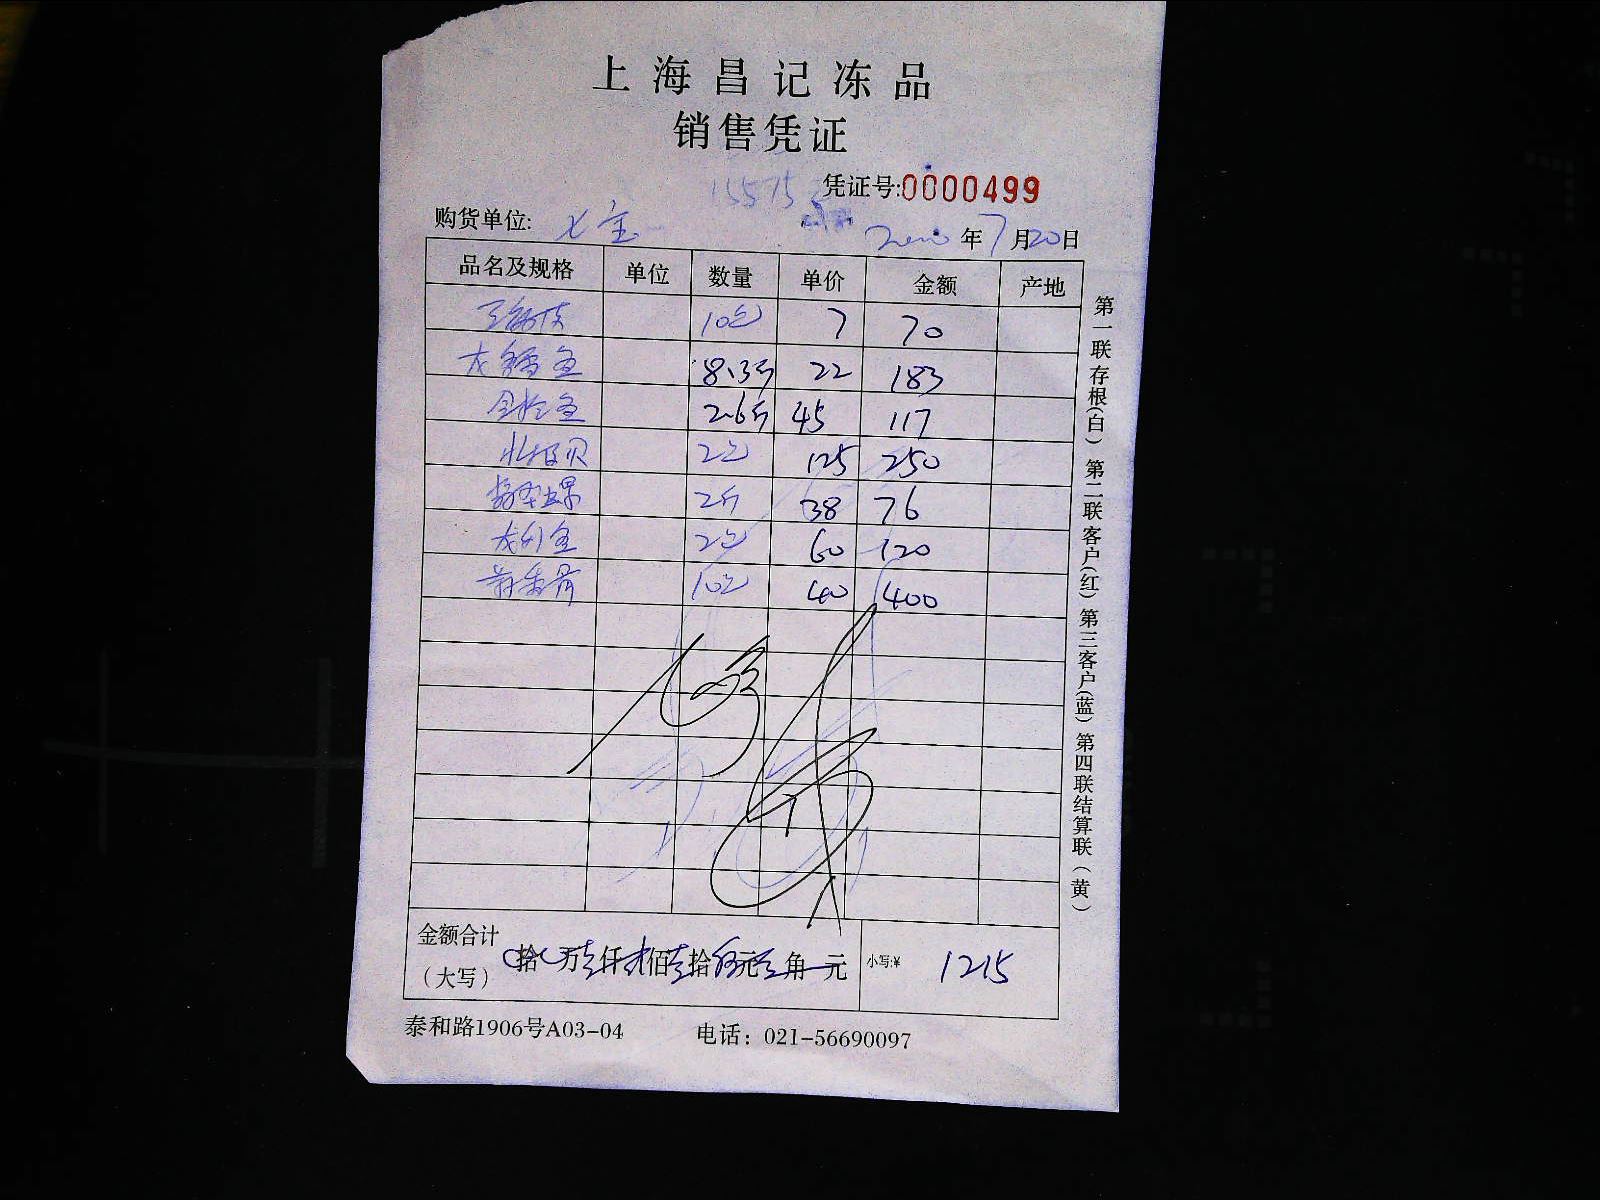 上海昌记冻品
销售凭证
15575
凭证号:0000499
购货单位: 七宝 年7月20日
品名及规格 单位 数量 单价 金额 产地
10包 7 70
龙鳕鱼 8.3斤 22 183
金枪鱼 2.6斤 45 117
北极贝 2包 125 250
2斤 38 76
2包 60 120
10包 40 400
金额合计
（大写） 拾 万壹仟贰佰壹拾伍元 角 元 小写:¥ 1215
泰和路1906号A03-04 电话：021-56690097
第一联存根(白) 第二联客户(红) 第三客户(蓝) 第四联结算联（黄）